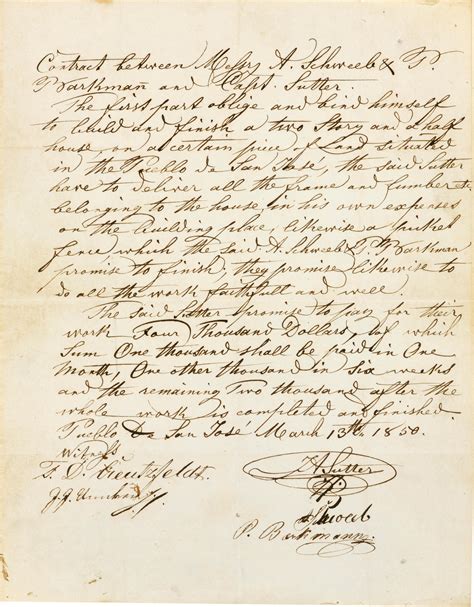 Contract between Messrs A. Schweeb & P.
Barkman and Capt. Sutter.
The first part oblige and bind himself
to build and finish a two Story and a half
house, on a certain piece of Land Situated
in the Pueblo de San José, the said Sutter
have to deliver all the frame and lumber
belonging to the house in his own expenses
on the building place, likewise a picket
fence which the said A. Schweeb & P. Barkman
promise to finish, they promise likewise to
do all the work faithfull and well.
The said Sutter promise to pay for their
work Four Thousand Dollars, of which
Sum One thousand shall be paid in One
Month, One other thousand in Six weeks
and the remaining Two thousand after the
whole work is completed and finished.
Pueblo De San José March 13th 1850.
Witness
J A Sutter
A Schweeb
P. Barkmann